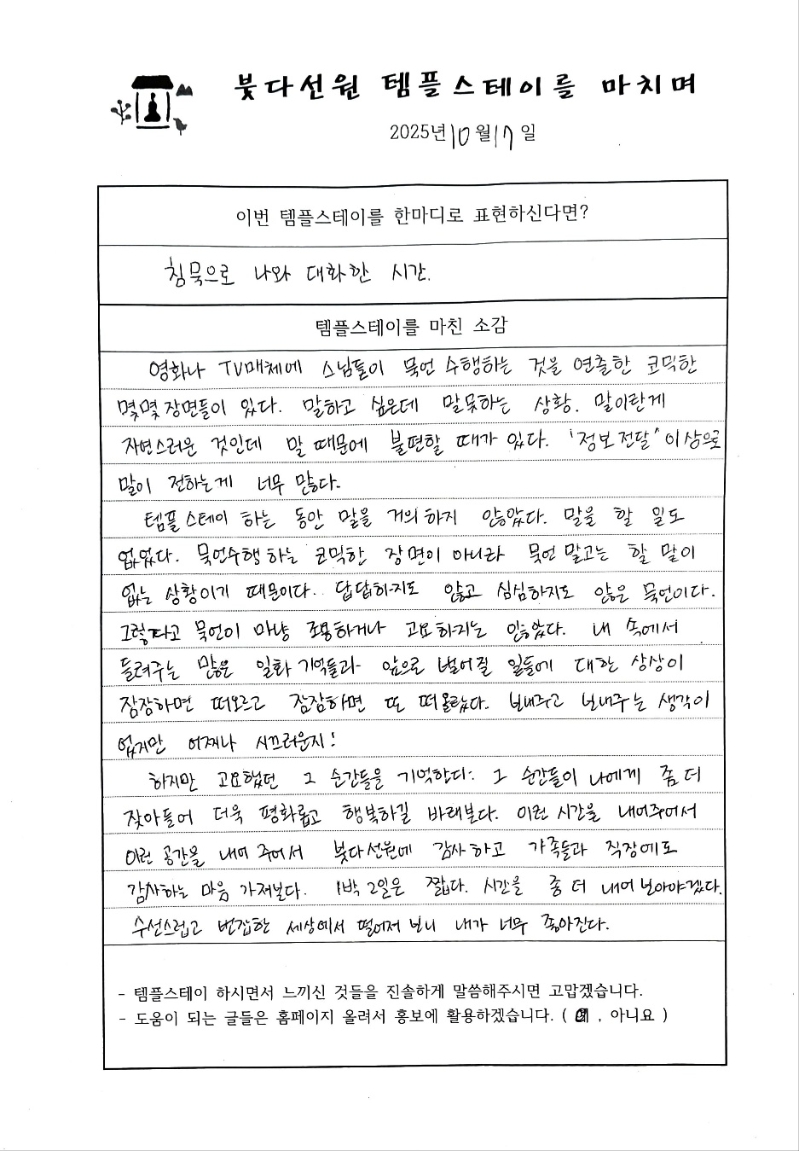 붓다선원 템플스테이를 마치며
2025년 10월 17일
이번 템플스테이를 한마디로 표현하신다면?
침묵으로 나와 대화한 시간.
템플스테이를 마친 소감
영화나 TV매체에 스님들이 묵언 수행하는 것을 연출한 코믹한
몇몇 장면들이 있다. 말하고 싶은데 말못하는 상황. 말이란게
자연스러운 것인데 말 때문에 불편할 때가 있다. "정보 전달" 이상으로
말이 전하는게 너무 많다.
템플스테이 하는 동안 말을 거의 하지 않았다. 말을 할 일도
없었다. 묵언수행 하는 코믹한 장면이 아니라 묵언 말고는 할 말이
없는 상황이기 때문이다. 답답하지도 않고 심심하지도 않은 묵언이다.
그렇다고 묵언이 마냥 조용하거나 고요하지는 않았다. 내 속에서
들려주는 많은 일화 기억들과 앞으로 벌어질 일들에 대한 상상이
잠잠하면 떠오르고 잠잠하면 또 떠올랐다. 보내주고 보내주는 생각이
없지만 어찌나 시끄러운지!
하지만 고요했던 그 순간들을 기억한다. 그 순간들이 나에게 좀 더
잦아들어 더욱 평화롭고 행복하길 바래본다. 이런 시간을 내어주어서
이런 공간을 내어 주어서 붓다선원에 감사하고 가족들과 직장에도
감사하는 마음 가져본다. 1박 2일은 짧다. 시간을 좀 더 내어 보아야겠다.
수선스럽고 번잡한 세상에서 떨어져 보니 내가 너무 좋아진다.
- 템플스테이 하시면서 느끼신 것들을 진솔하게 말씀해주시면 고맙겠습니다.
- 도움이 되는 글들은 홈페이지 올려서 홍보에 활용하겠습니다. ( , 아니요 )